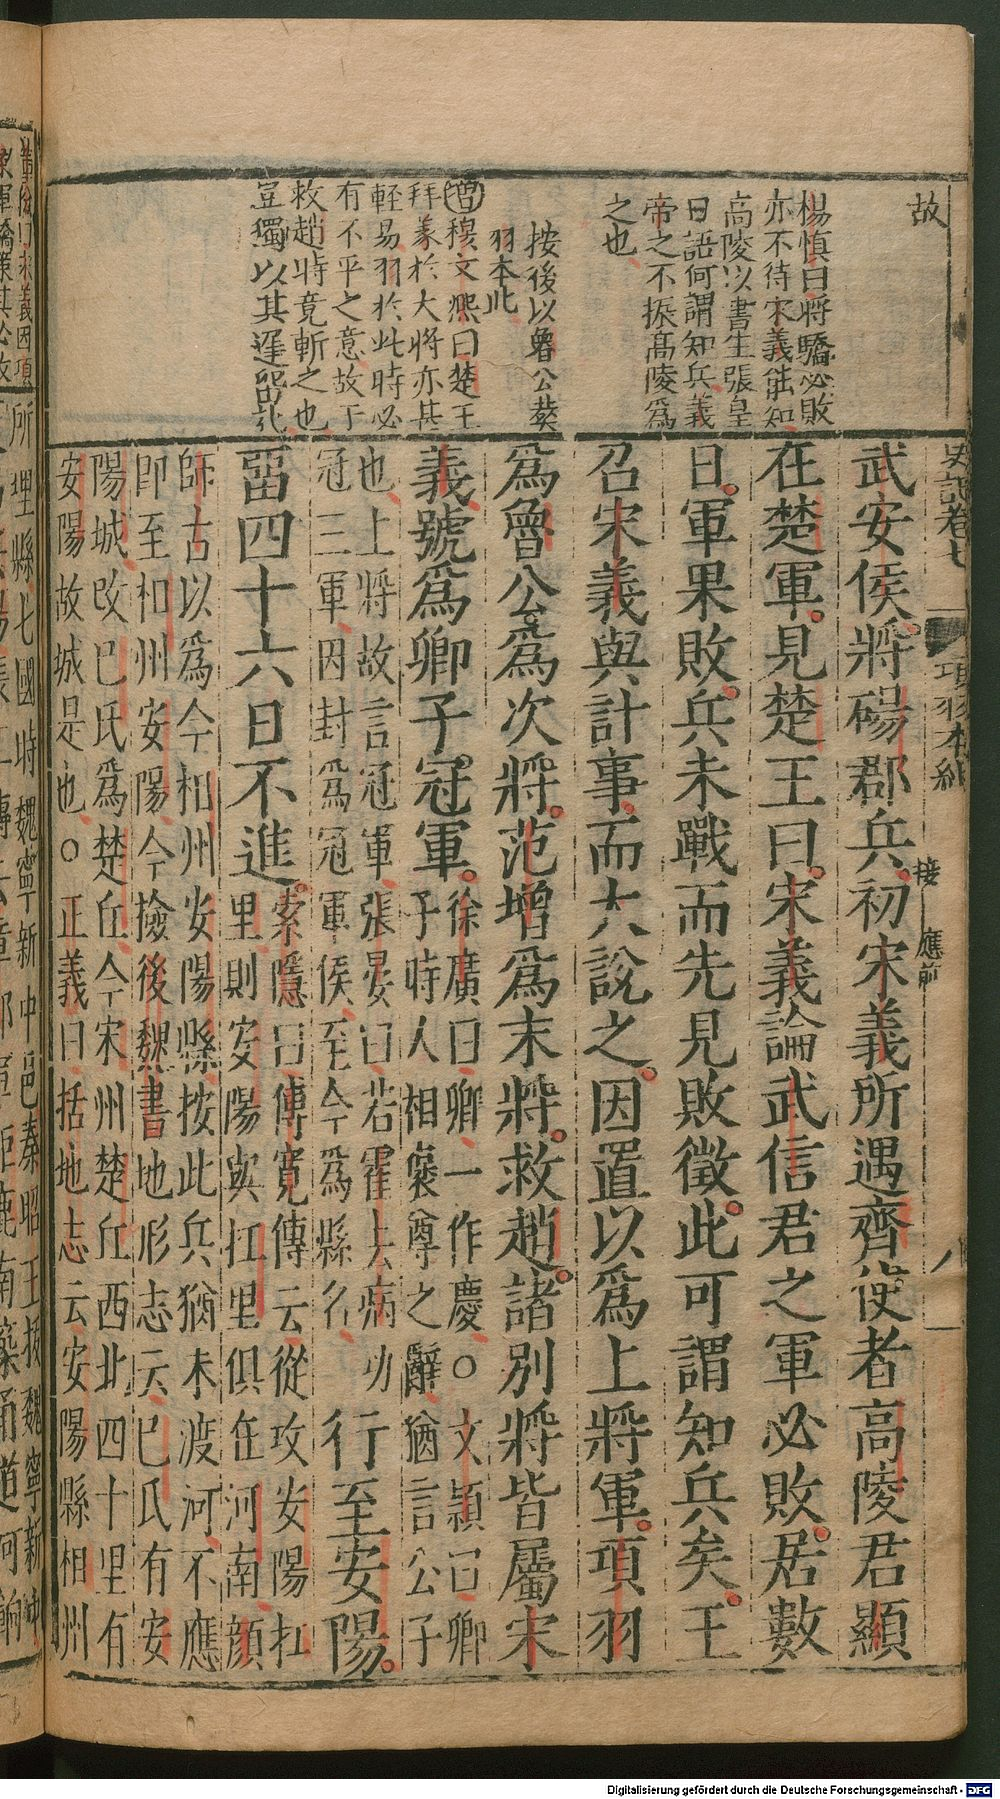 故
楊慎曰將驕必敗
亦不待宋義能知
高陵以書生張皇
曰語何謂知兵義
帝之不振高陵爲
之也
按後以魯公葬
羽本此
增穆文熙曰楚王
拜義於大將亦甚
輕易羽於此時必
有不平之意故于
救趙時竟斬之也
豈獨以其遲留於
史記卷七
項羽本紀
接應前
武安侯將碭郡兵初宋義所遇齊使者高陵君顯
在楚軍見楚王曰宋義論武信君之軍必敗居數
日軍果敗兵未戰而先見敗徵此可謂知兵矣王
召宋義與計事而大說之因置以爲上將軍項羽
爲魯公爲次將范增爲末將救趙諸別將皆屬宋
義號爲卿子冠軍徐廣曰卿一作慶○文穎曰卿
子時人相襃尊之辭猶言公子
也上將故言冠軍張晏曰若霍去病功
冠三軍因封爲冠軍侯至今爲縣名
行至安陽
畱四十六日不進索隱曰傅寬傳云從攻安陽扛
里則安陽與扛里俱在河南顔
師古以爲今相州安陽縣按此兵猶未渡河不應
卽至相州安陽今撿後魏書地形志云巳氏有安
陽城改巳氏爲楚丘今宋州楚丘西北四十里有
安陽故城是也○正義曰括地志云安陽縣相州
所理縣七國時魏寧新中邑秦昭王拔魏寧新中
Digitalisierung gefördert durch die Deutsche Forschungsgemeinschaft - DFG